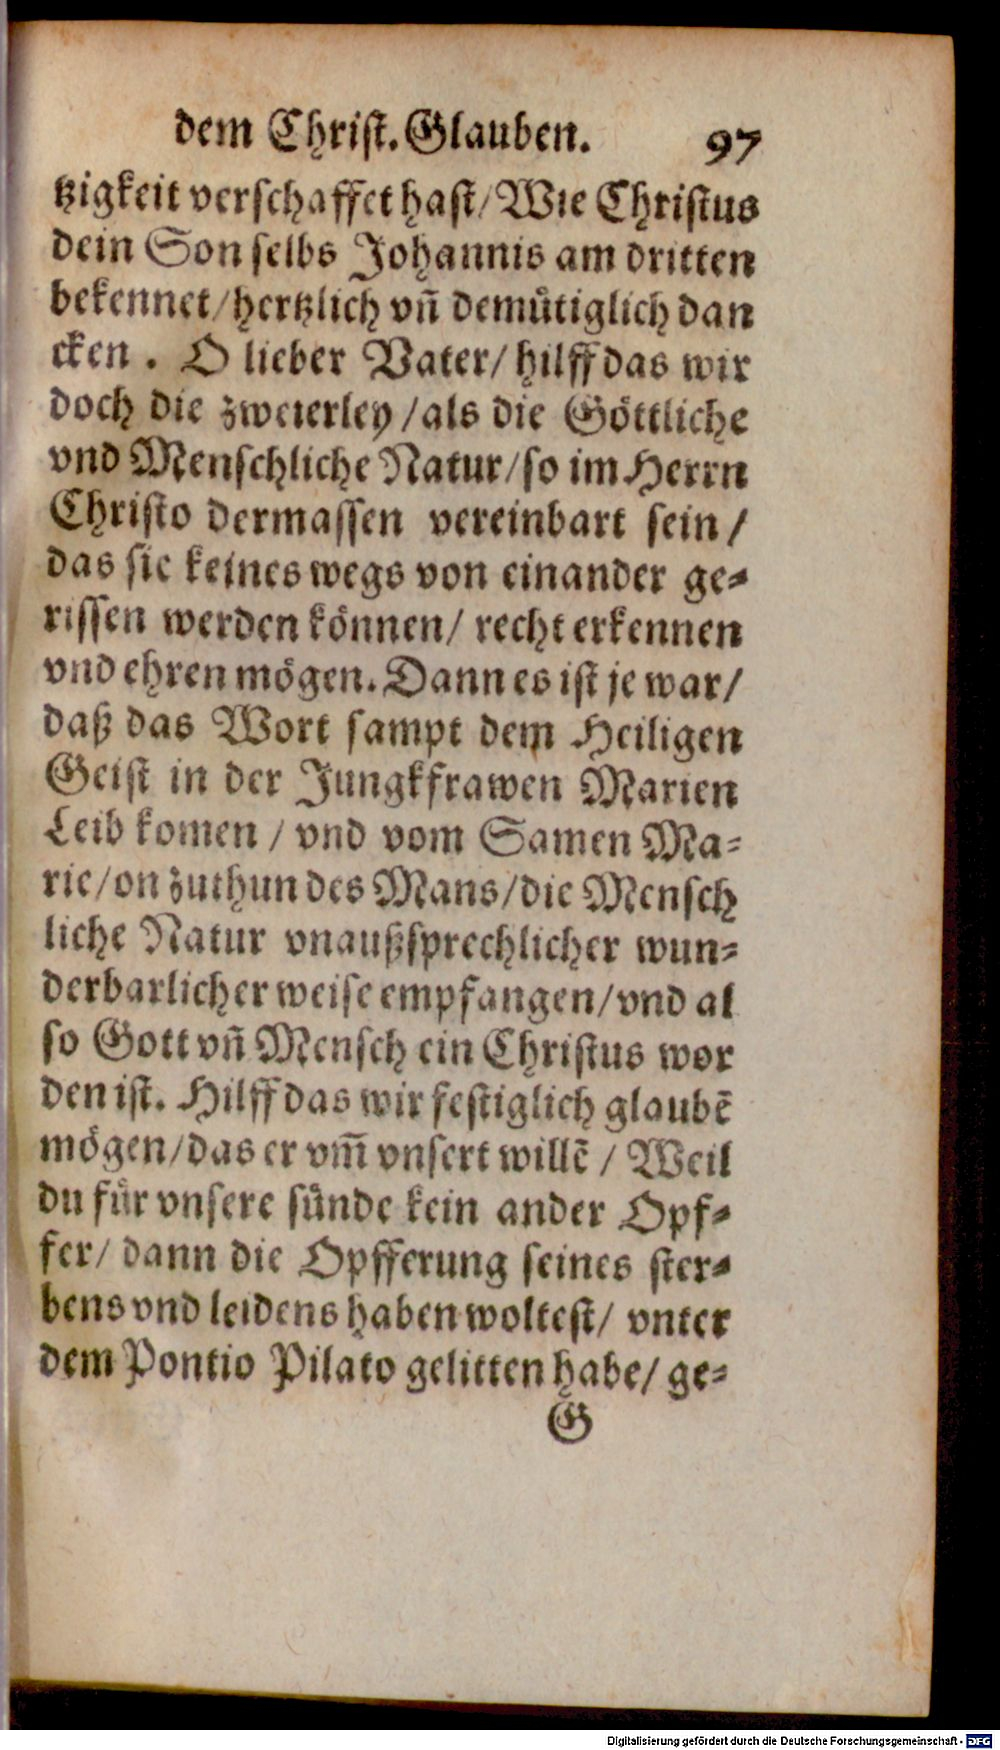 dem Christ. Glauben. 97
tzigkeit verschaffet hast/ Wie Christus
dein Son selbs Johannis am dritten
bekennet/ hertzlich vñ demütiglich dan
cken. O lieber Vater/ hilff das wir
doch die zweierley/ als die Göttliche
vnd Menschliche Natur/ so im Herrn
Christo dermassen vereinbart sein/
das sie keines wegs von einander ge-
rissen werden können/ recht erkennen
vnd ehren mögen. Dann es ist je war/
daß das Wort sampt dem Heiligen
Geist in der Jungkfrawen Marien
Leib komen/ vnd vom Samen Ma-
rie/ on zuthun des Mans/ die Mensch
liche Natur vnaußsprechlicher wun-
derbarlicher weise empfangen/ vnd al
so Gott vñ Mensch ein Christus wor
den ist. Hilff das wir festiglich glaubē
mögen/ das er vm̃ vnsert willē/ Weil
du für vnsere sünde kein ander Opf-
fer/ dann die Opfferung seines ster-
bens vnd leidens haben woltest/ vnter
dem Pontio Pilato gelitten habe/ ge-
G
Digitalisierung gefördert durch die Deutsche Forschungsgemeinschaft - DFG